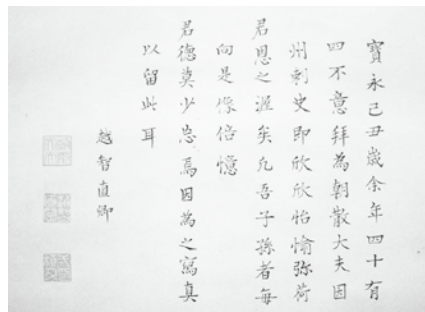 寶永己丑歲余年四十有
四不意拜為朝散大夫因
州刺史即欣欣怡愉弥荷
君恩之渥矣凡吾子孫者每
向是像倍憶
君德莫少忘焉因為之寫真
以留此耳
越智直卿